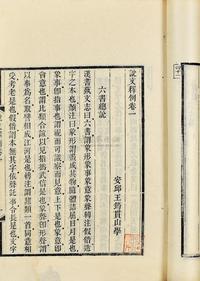 說文釋例卷一
安邱王筠貫山學
六書總說
漢書藝文志曰六書謂象形象事象意象聲轉注假借造
字之本也顏注曰象形謂畫成其物隨體詰屈日月是也
象事即指事也謂視而可識察而見意上下是也象意即
會意也謂比類合誼以見指撝武信是也象聲即形聲謂
以事爲名取譬相成江河是也轉注謂建類一首同意相
受考老是也假借謂本無其字依聲託事令長是也文字